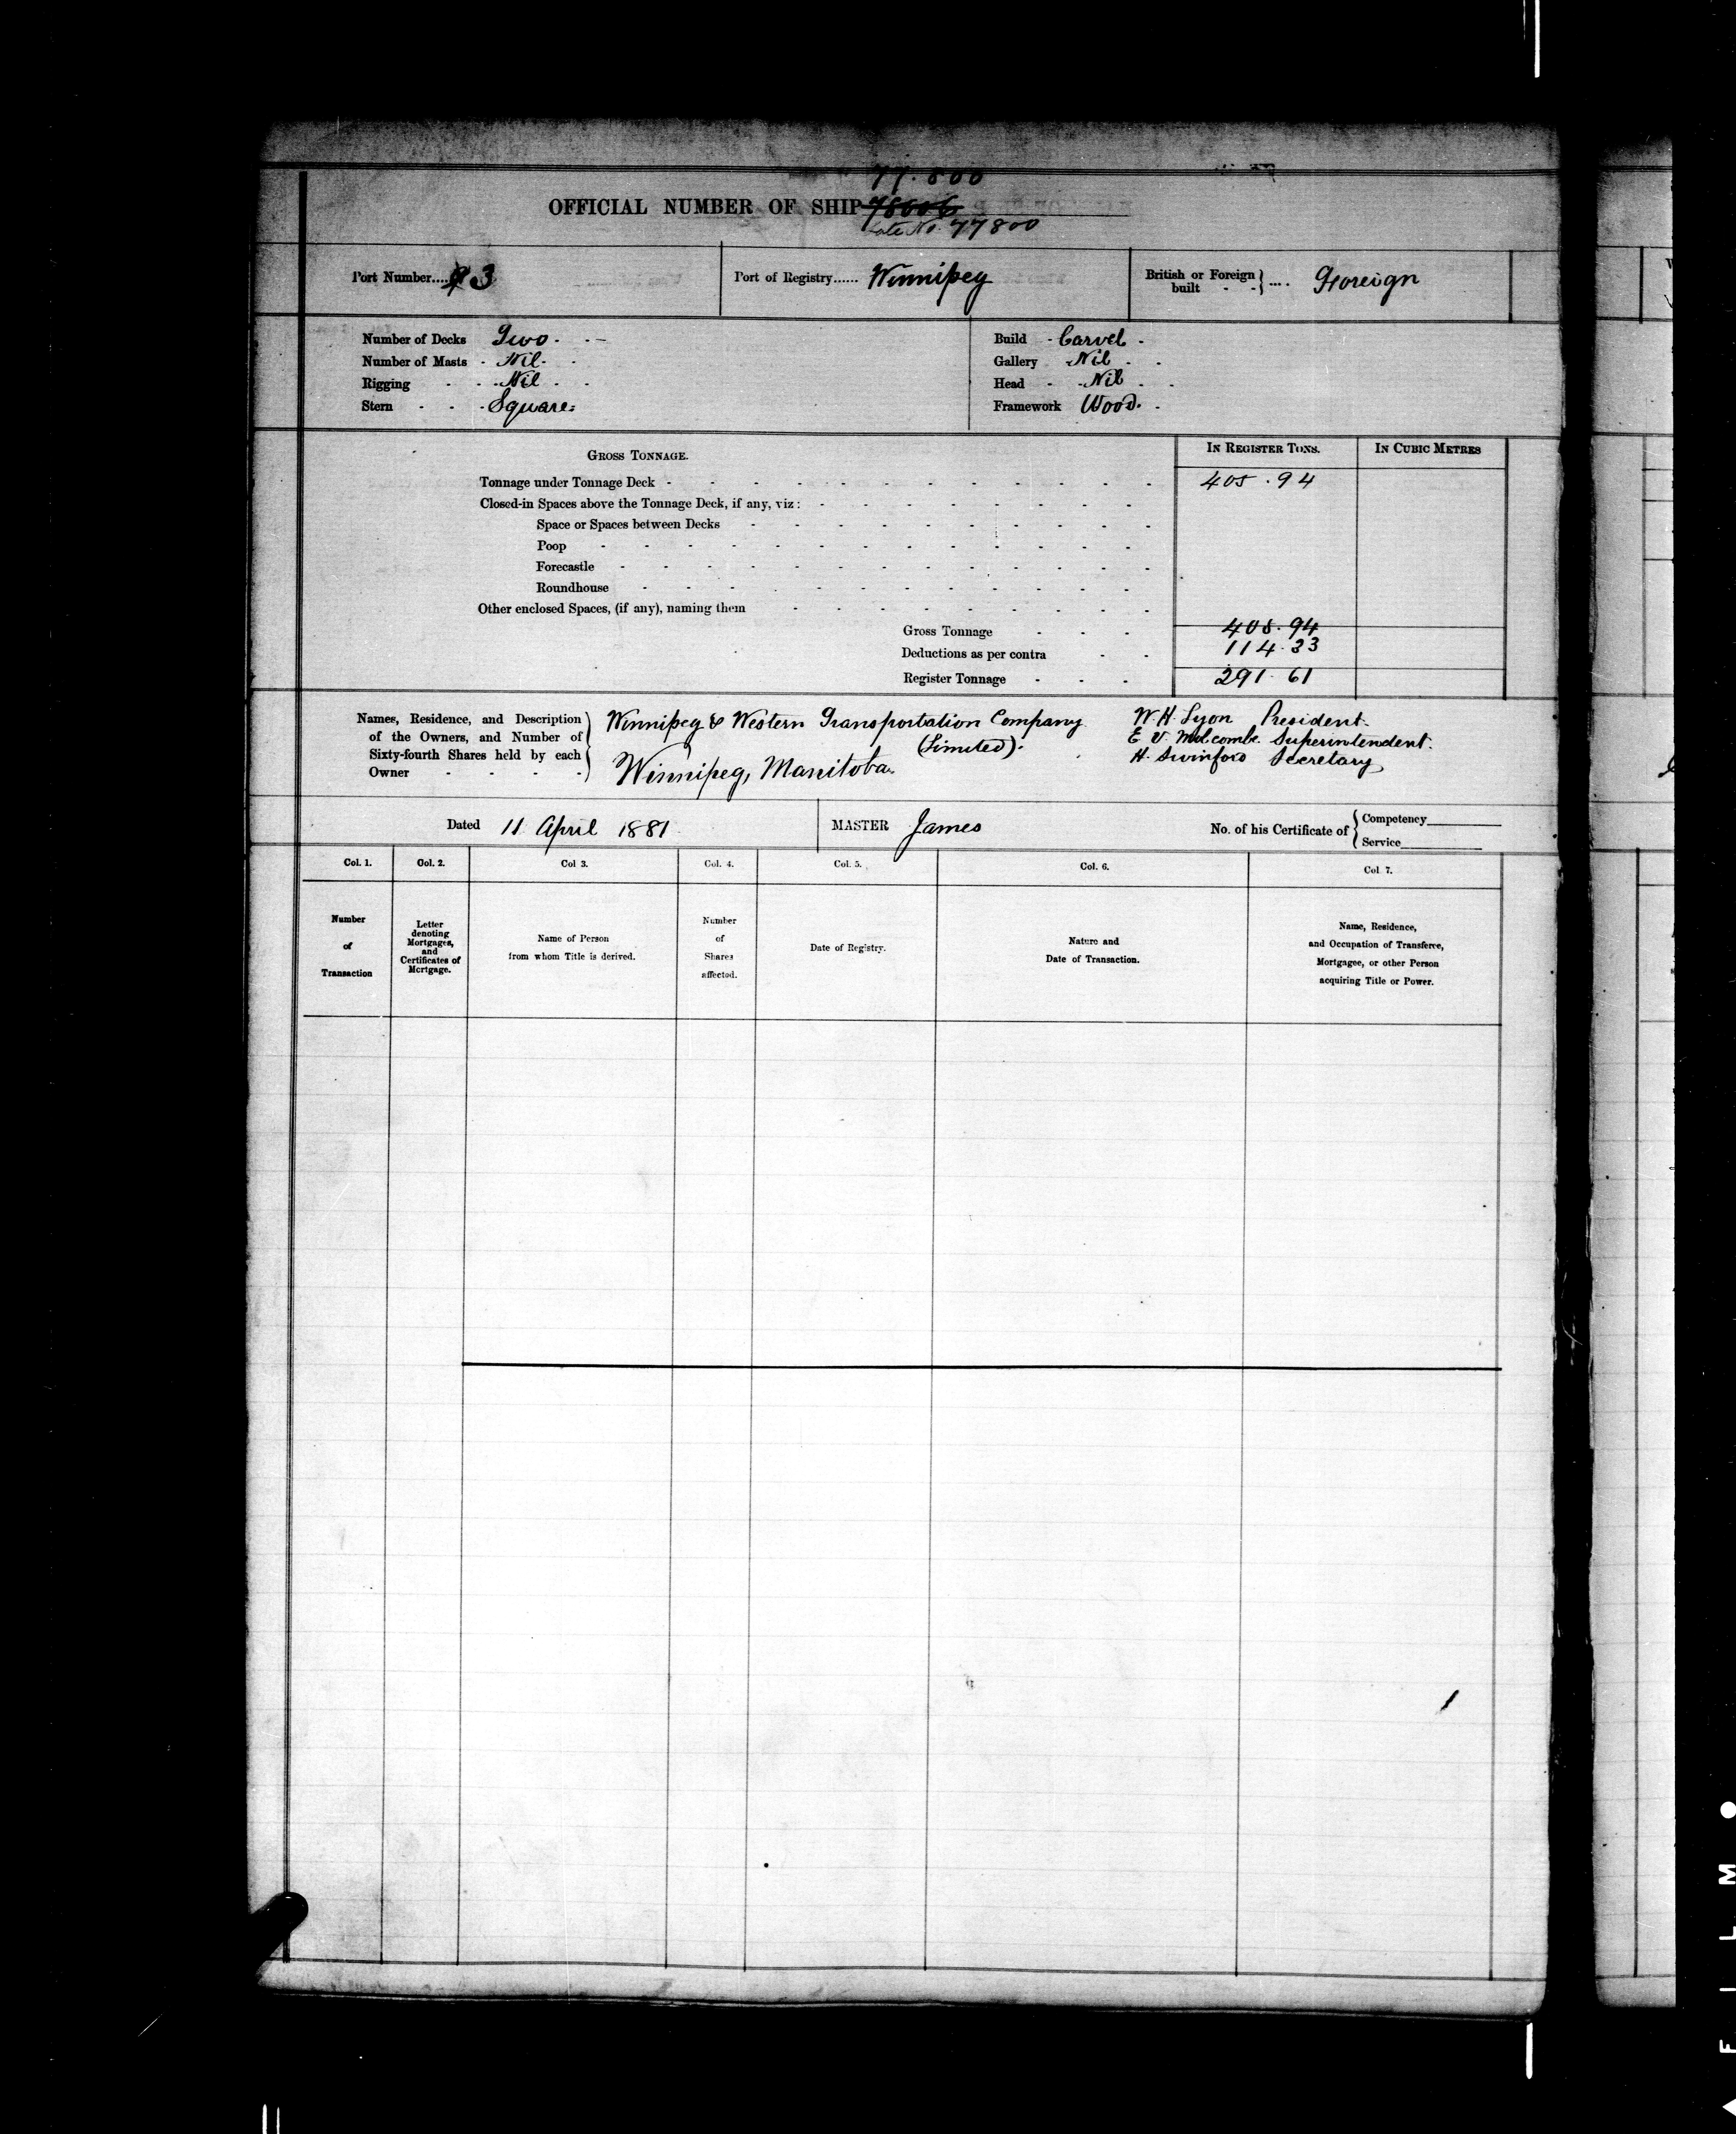 77.800
OFFICIAL NUMBER OF SHIP 78006
Late No. 77800
Port Number.... 3
Port of Registry...... Winnipeg
British or Foreign built - - } .... Foreign
Number of Decks Two.
Number of Masts - Nil.
Rigging - - - Nil
Stern - - - Square
Build - Carvel -
Gallery - Nil
Head - - Nil
Framework Wood.
GROSS TONNAGE.
IN REGISTER TONS.
IN CUBIC METRES
Tonnage under Tonnage Deck - 405.94
Closed-in Spaces above the Tonnage Deck, if any, viz :
Space or Spaces between Decks
Poop
Forecastle
Roundhouse
Other enclosed Spaces, (if any), naming them
Gross Tonnage - - - 405.94
Deductions as per contra - - 114.33
Register Tonnage - - - 291.61
Names, Residence, and Description
of the Owners, and Number of
Sixty-fourth Shares held by each
Owner - - - -
Winnipeg & Western Transportation Company
(Limited).
Winnipeg, Manitoba
W. H. Lyon President.
E. V. Superintendent.
H. Swinford Secretary
Dated 11 April 1881
MASTER James
No. of his Certificate of { Competency
Service
Col. 1.
Col. 2.
Col 3.
Col. 4.
Col. 5.
Col. 6.
Col 7.
Number
of
Transaction
Letter
denoting
Mortgages,
and
Certificates of
Mortgage.
Name of Person
from whom Title is derived.
Number
of
Shares
affected.
Date of Registry.
Nature and
Date of Transaction.
Name, Residence,
and Occupation of Transferee,
Mortgagee, or other Person
acquiring Title or Power.
FILM